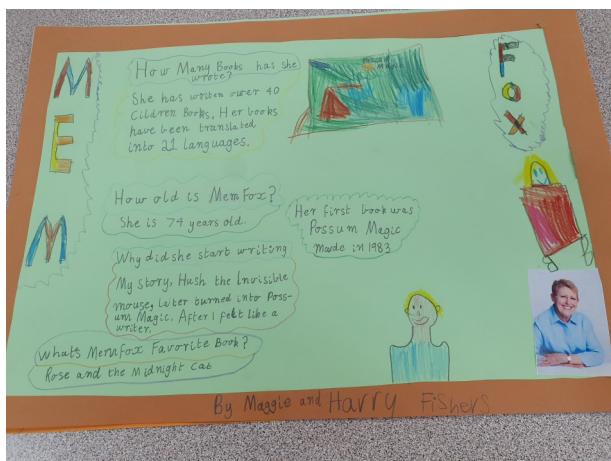 MEM
FOX
How Many Books has she
wrote?
She has writen over 40
Cildren Books. Her books
have been translated
into 21 languages.
POSSUM
MAGIC
How old is MemFox?
She is 74 years old.
Her first book was
Possum Magic
made in 1983
Why did she start writing
My story, Hush the Invisible
mouse, later turned into Poss-
um Magic. After I felt like a
writer.
Whats Memfox Favorite Book?
Rose and the Midnight Cat
By Maggie and Harry Fishers